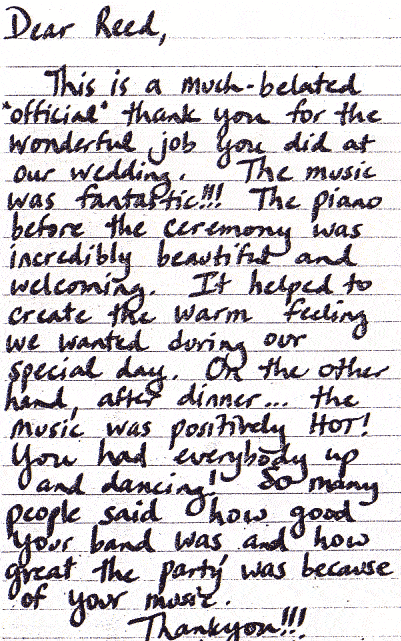 Dear Reed,
This is a much-belated
"official" thank you for the
wonderful job you did at
our wedding. The music
was fantastic!!! The piano
before the ceremony was
incredibly beautiful and
welcoming. It helped to
create the warm feeling
we wanted during our
special day. On the other
hand, after dinner... the
music was positively HOT!
You had everybody up
and dancing! So many
people said how good
your band was and how
great the party was because
of your music.
Thankyou!!!